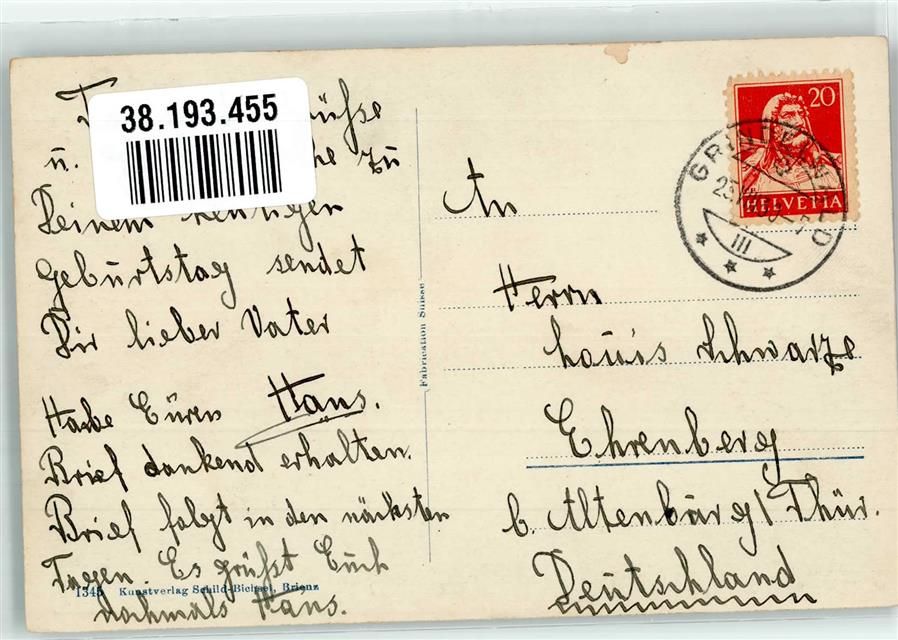 38.193.455
u. zu
Deinem heutigen
Geburtstag sendet
Dir lieber Vater
Hans.
Habe Euren
Brief dankend erhalten.
Brief folgt in den nächsten
Tagen. Es grüßt Euch
nochmals Hans.
1345 Kunstverlag Schild-Bichsel, Brienz
Fabrication Suisse
20
HELVETIA
GRINDELWALD
III
An
Herrn
Louis Schwarze
Ehrenberg
b. Altenburg/Thür.
Deutschland